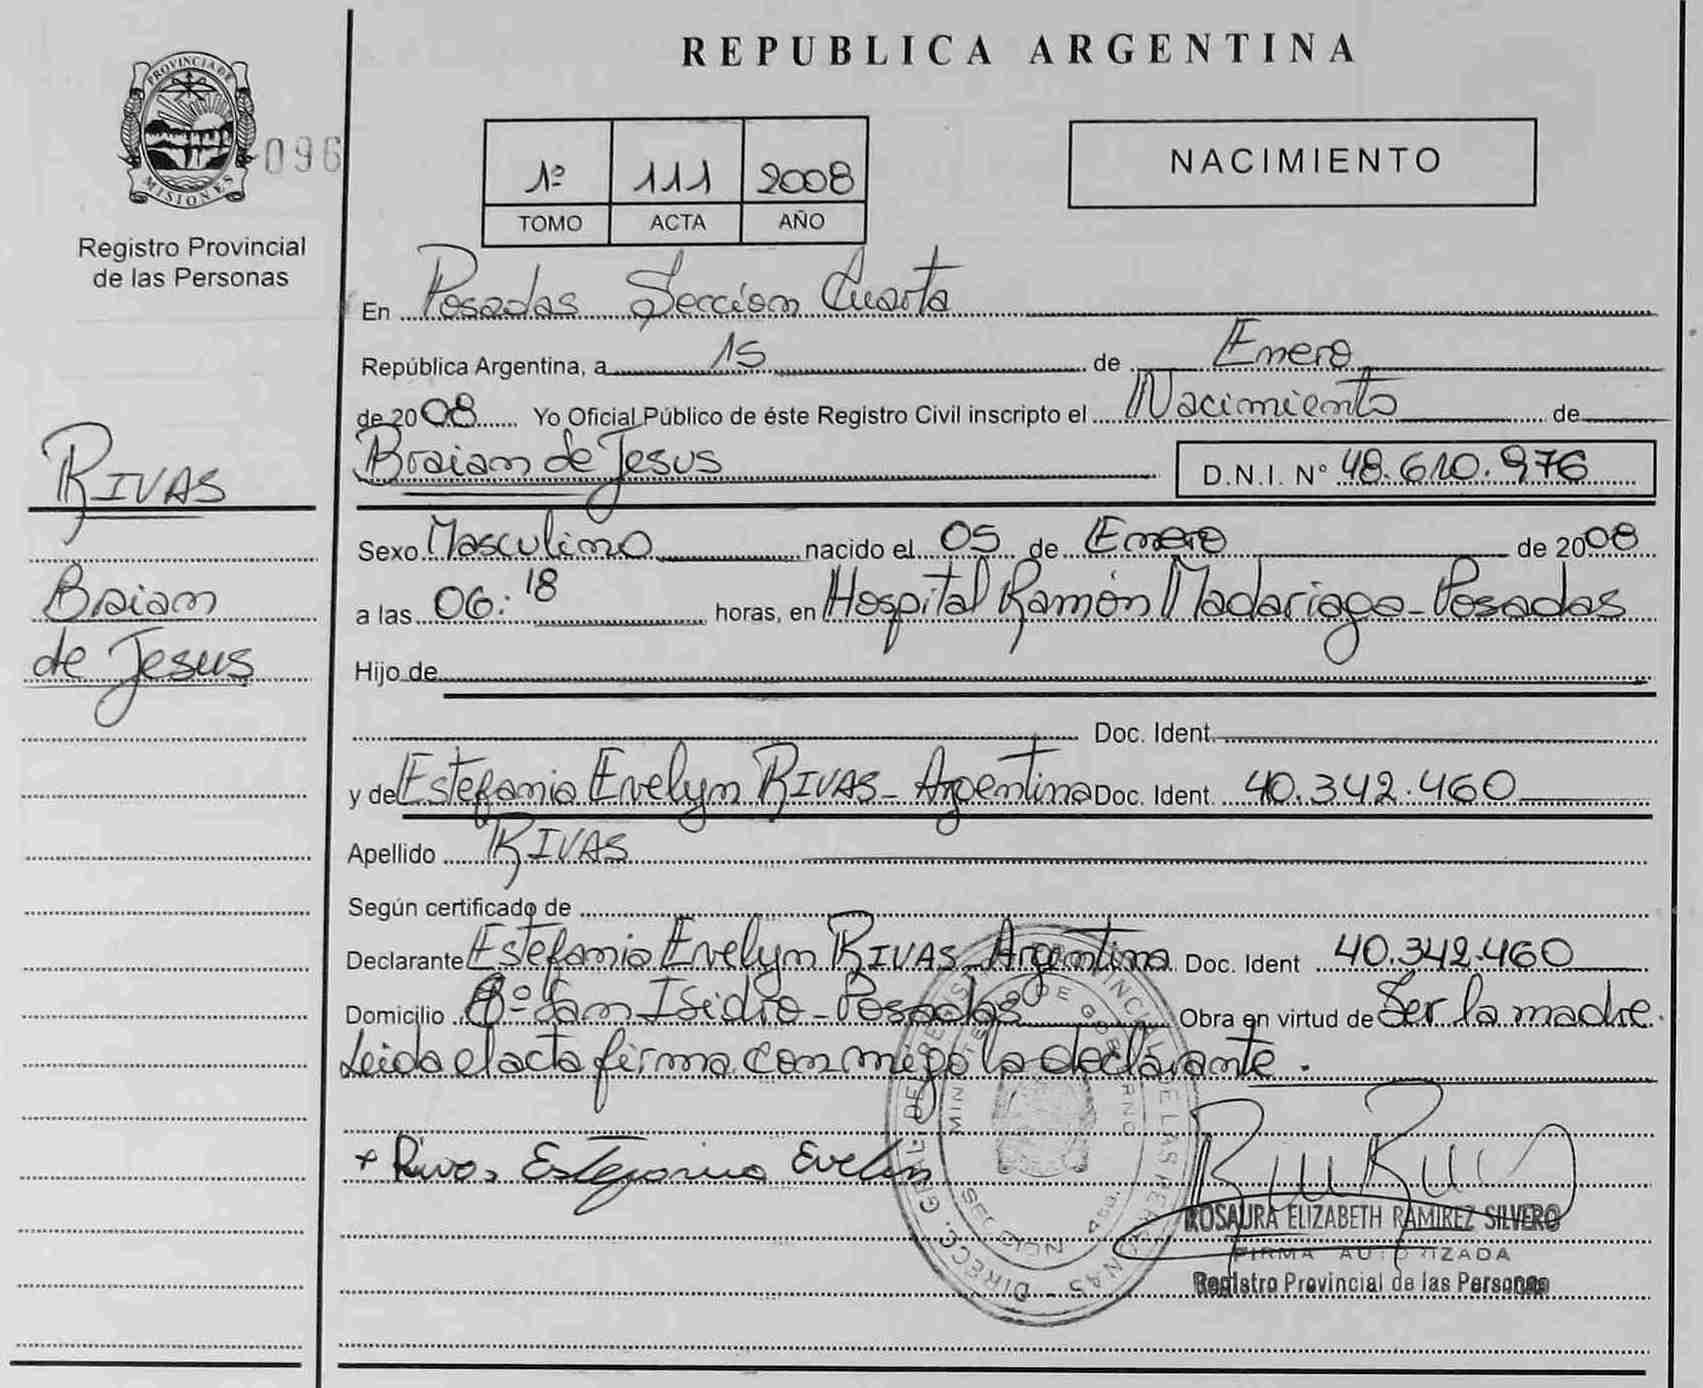 REPUBLICA ARGENTINA
PROVINCIA DE
MISIONES
096
Registro Provincial
de las Personas
1º 111 2008
TOMO ACTA AÑO
NACIMIENTO
En Posadas Seccion Cuarta
República Argentina, a 15 de Enero
de 2008 Yo Oficial Público de éste Registro Civil inscripto el Nacimiento de
Braian de Jesus D.N.I. Nº 48.610.976
RIVAS
Braian
de Jesus
Sexo Masculino nacido el 05 de Enero de 2008
a las 06:18 horas, en Hospital Ramón Madariaga - Posadas
Hijo de
Doc. Ident.
y de Estefania Evelyn RIVAS - Argentina Doc. Ident. 40.342.460
Apellido RIVAS
Según certificado de
Declarante Estefania Evelyn RIVAS - Argentina Doc. Ident 40.342.460
Domicilio Bº San Isidro - Posadas Obra en virtud de Ser la madre.
Leida el acta firma con migo la declarante.
+ Rivas Estefania Evelin
ROSAURA ELIZABETH RAMIREZ SILVERO
FIRMA AUTORIZADA
Registro Provincial de las Personas